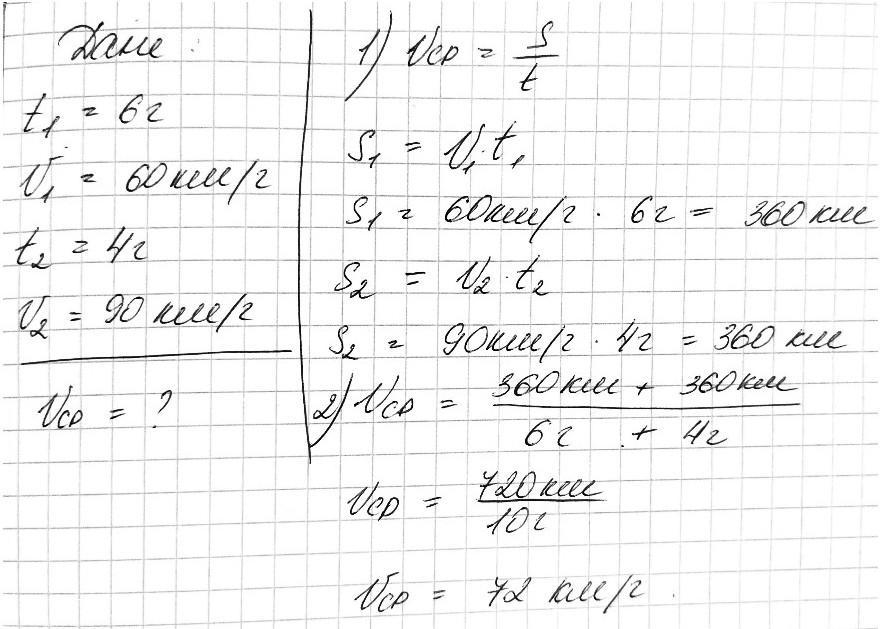 Дане
t₁ = 6г
V₁ = 60км/г
t₂ = 4г
V₂ = 90 км/г
Vср = ?
1) Vср = S/t
S₁ = V₁·t₁
S₁ = 60км/г · 6г = 360 км
S₂ = V₂·t₂
S₂ = 90км/г · 4г = 360 км
2) Vср = (360км + 360км)/(6г + 4г)
Vср = 720км/10г
Vср = 72 км/г.